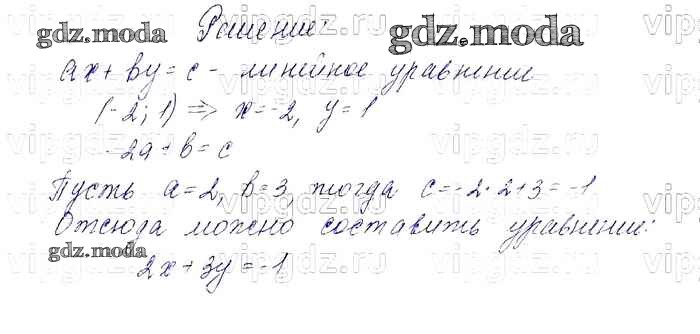 gdz.moda Решение: gdz.moda
ax + by = c - линейное уравнение
(-2; 1) => x = -2, y = 1
-2a + b = c
Пусть a = 2, b = 3, тогда c = -2·2+3 = -1
Отсюда можно составить уравнение:
gdz.moda
2x + 3y = -1